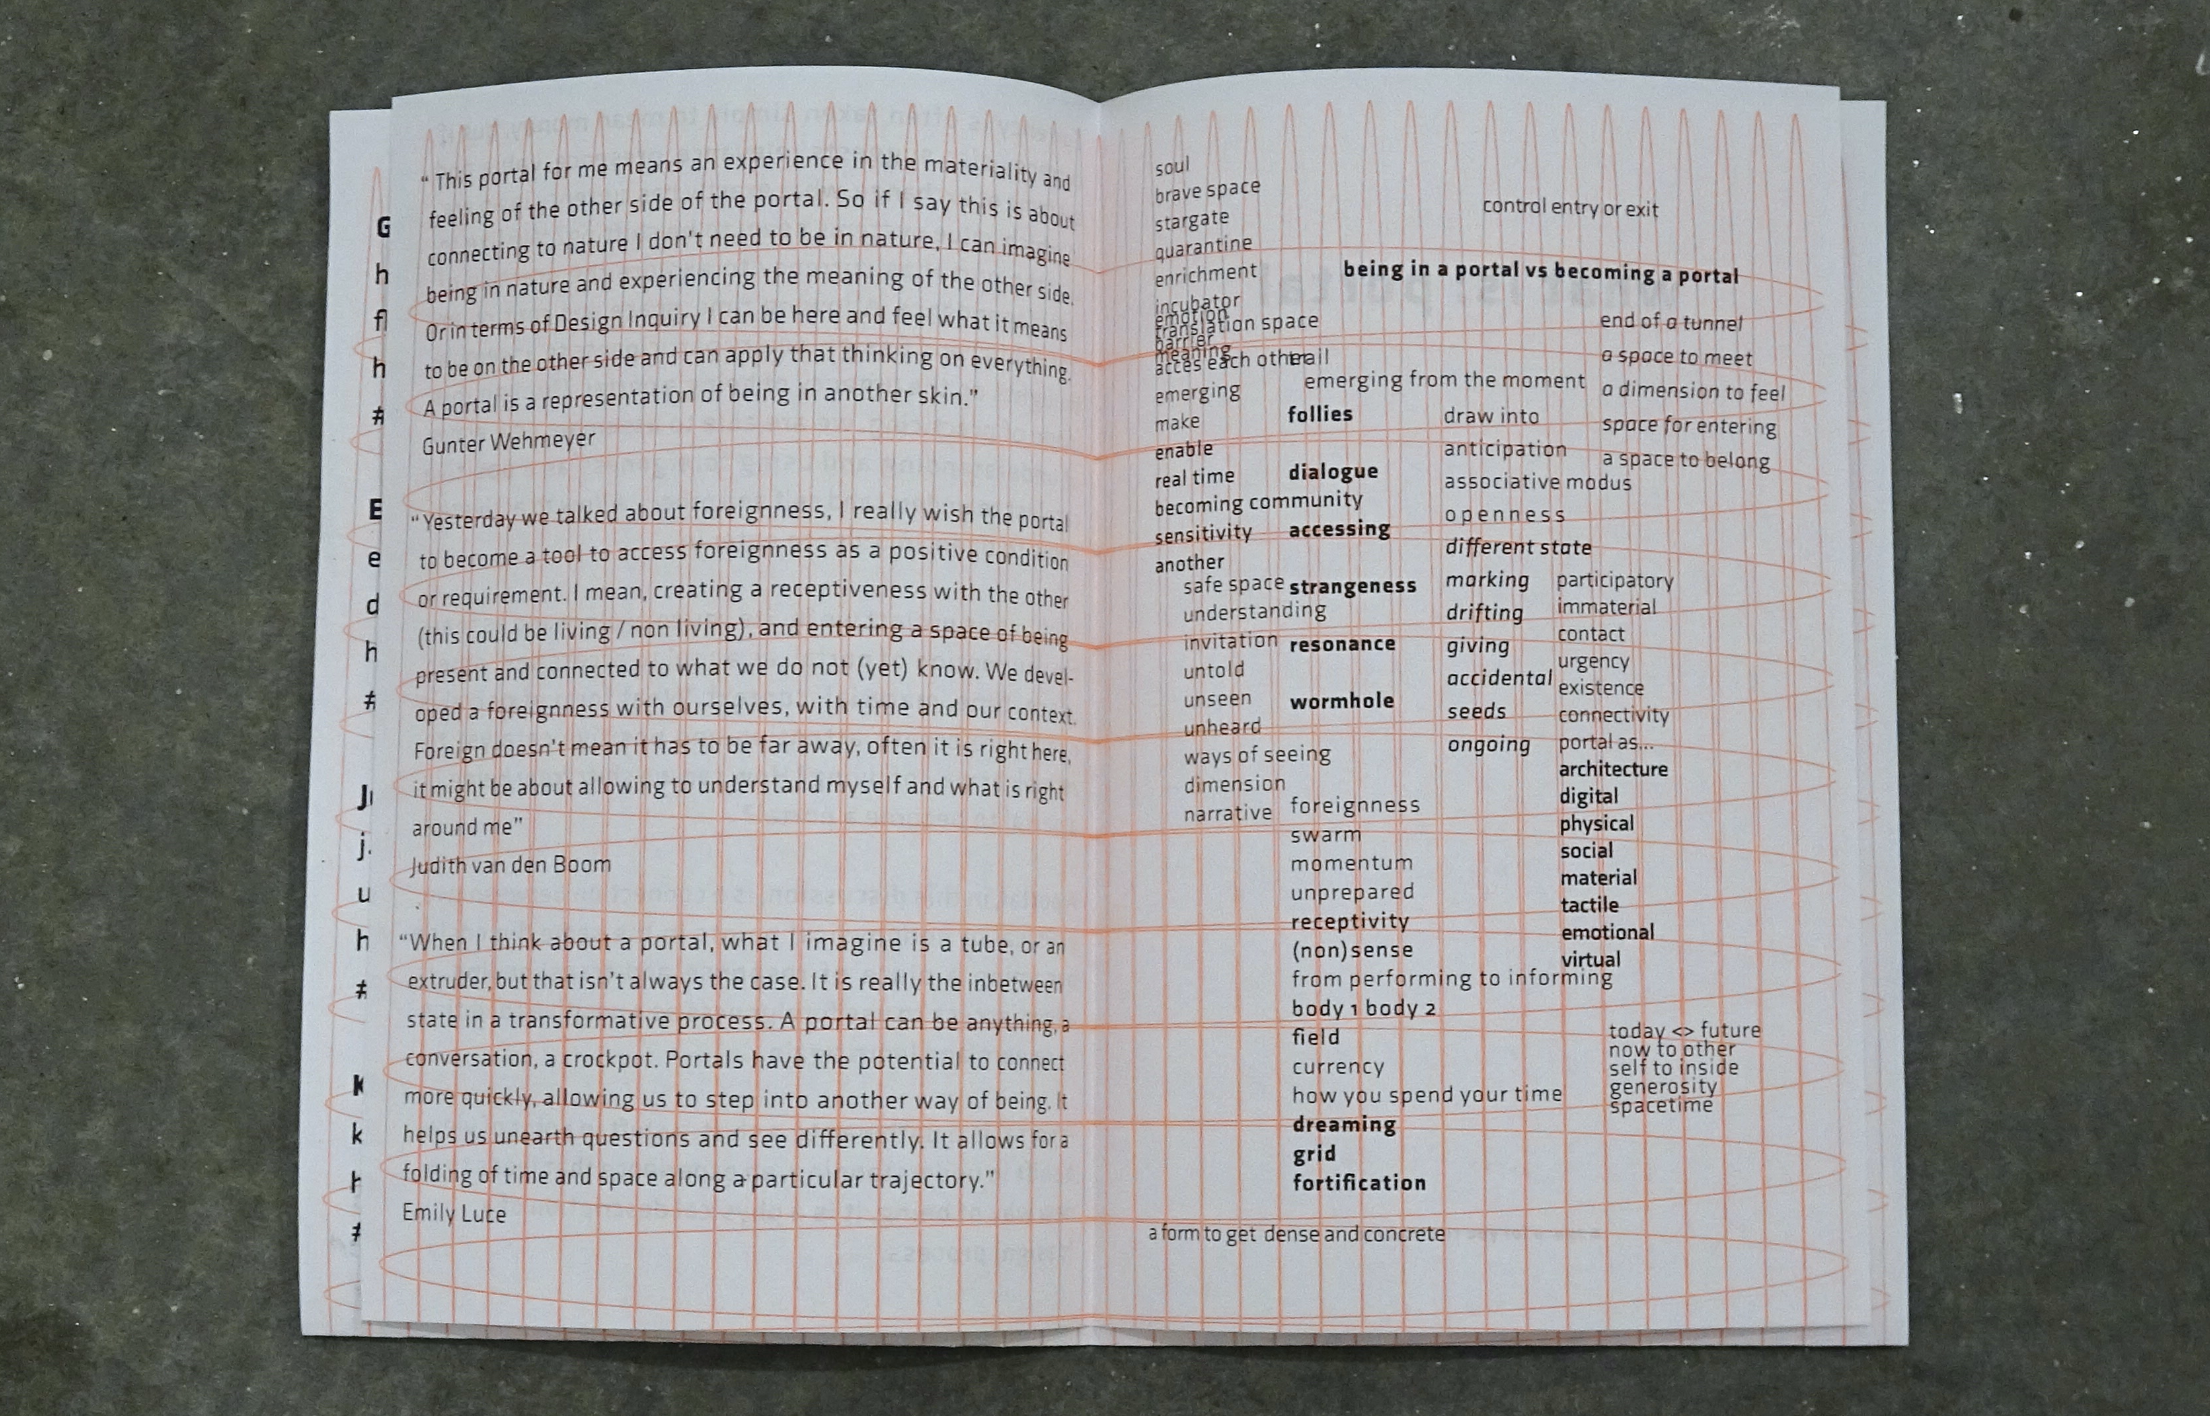 G
h
fl
h
#
E
e
d
h
#
J
j.
u
h
#
K
k
h
#
“ This portal for me means an experience in the materiality and
feeling of the other side of the portal. So if I say this is about
connecting to nature I don't need to be in nature, I can imagine
being in nature and experiencing the meaning of the other side.
Or in terms of Design Inquiry I can be here and feel what it means
to be on the other side and can apply that thinking on everything.
A portal is a representation of being in another skin.”
Gunter Wehmeyer
“Yesterday we talked about foreignness, I really wish the portal
to become a tool to access foreignness as a positive condition
or requirement. I mean, creating a receptiveness with the other
(this could be living / non living), and entering a space of being
present and connected to what we do not (yet) know. We devel-
oped a foreignness with ourselves, with time and our context.
Foreign doesn't mean it has to be far away, often it is right here,
it might be about allowing to understand myself and what is right
around me”
Judith van den Boom
“When I think about a portal, what I imagine is a tube, or an
extruder, but that isn't always the case. It is really the inbetween
state in a transformative process. A portal can be anything, a
conversation, a crockpot. Portals have the potential to connect
more quickly, allowing us to step into another way of being. It
helps us unearth questions and see differently. It allows for a
folding of time and space along a particular trajectory.”
Emily Luce
soul
brave space
stargate
quarantine
enrichment
incubator
emotion
translation space
barrier
meaning
acces each other
emerging
make
enable
real time
becoming community
sensitivity
another
safe space
understanding
invitation
untold
unseen
unheard
ways of seeing
dimension
narrative
control entry or exit
being in a portal vs becoming a portal
emerging from the moment
follies
dialogue
accessing
strangeness
resonance
wormhole
foreignness
swarm
momentum
unprepared
receptivity
(non)sense
from performing to informing
body 1 body 2
field
currency
how you spend your time
dreaming
grid
fortification
draw into
anticipation
associative modus
openness
different state
marking
drifting
giving
accidental
seeds
ongoing
end of a tunnel
a space to meet
a dimension to feel
space for entering
a space to belong
participatory
immaterial
contact
urgency
existence
connectivity
portal as...
architecture
digital
physical
social
material
tactile
emotional
virtual
today <> future
now to other
self to inside
generosity
spacetime
a form to get dense and concrete